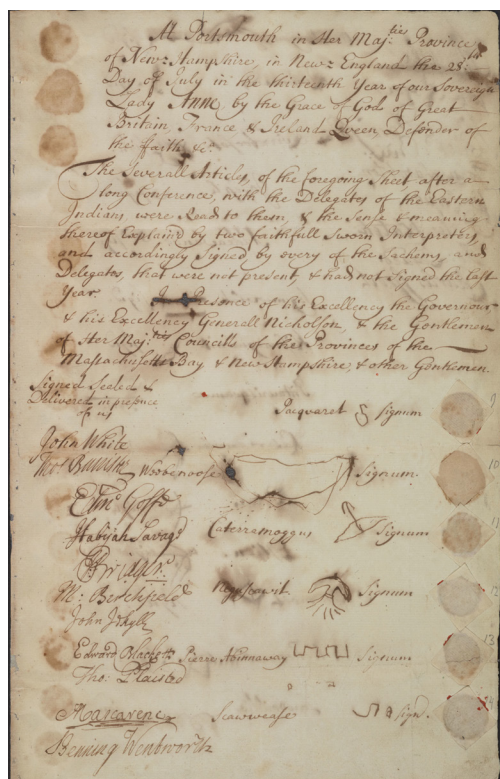 At Portsmouth in Her Maj:ties Province
of New=Hampshire, in New=England the 28:th
Day of July in the thirteenth Year of our Sovereign
Lady ANNE by the Grace of God of Great
Britain, France & Ireland Queen, Defender of
the Faith &c:
The Severall Articles, of the foregoing Sheet after a
long Conference, with the Delegates of the Eastern
Indians, were Read to them, & the Sense & meaning
thereof Explain'd by two faithfull Sworn Interpreters,
and accordingly Signed by every of the Sachems, and
Delegates, that were not present, & had not Signed the last
Year.
In Presence of his Excellency the Governour
& his Excellency Generall Nicholson, & the Gentlemen
of Her Maj:ties Councils of the Provinces of the
Massachusetts Bay & New Hampshire, & other Gentlemen.
Signed Sealed &
Delivered in presence
of us
Pacquaret signum 9
John White
Woobenoose Signum. 10
Edm: Goffe
Habijah Savage Caterramoggus Signum
Signum 12
Edward Pierre Signum 13
Tho: Plaisted
Scawwease Sign.
Benning Wentworth